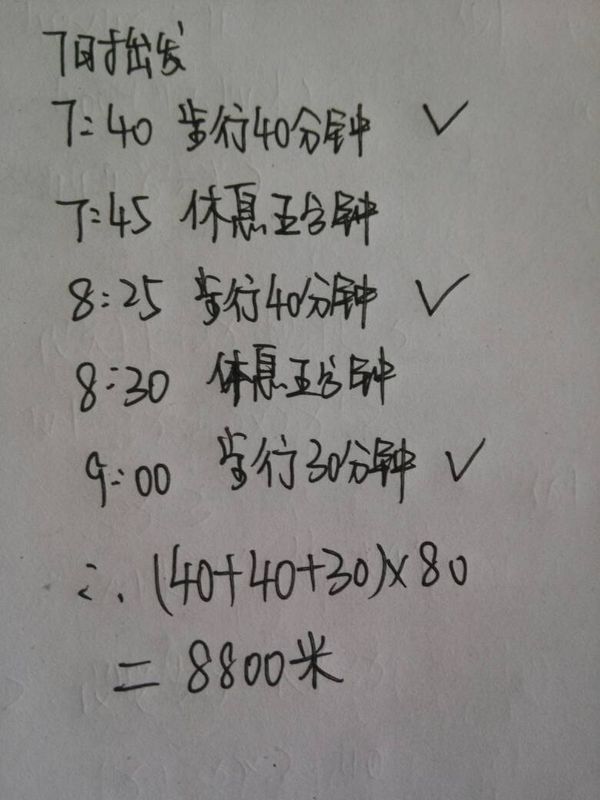 7时出发
7:40 步行40分钟 ✓
7:45 休息五分钟
8:25 步行40分钟 ✓
8:30 休息五分钟
9:00 步行30分钟 ✓
∴ (40+40+30)×80
= 8800米